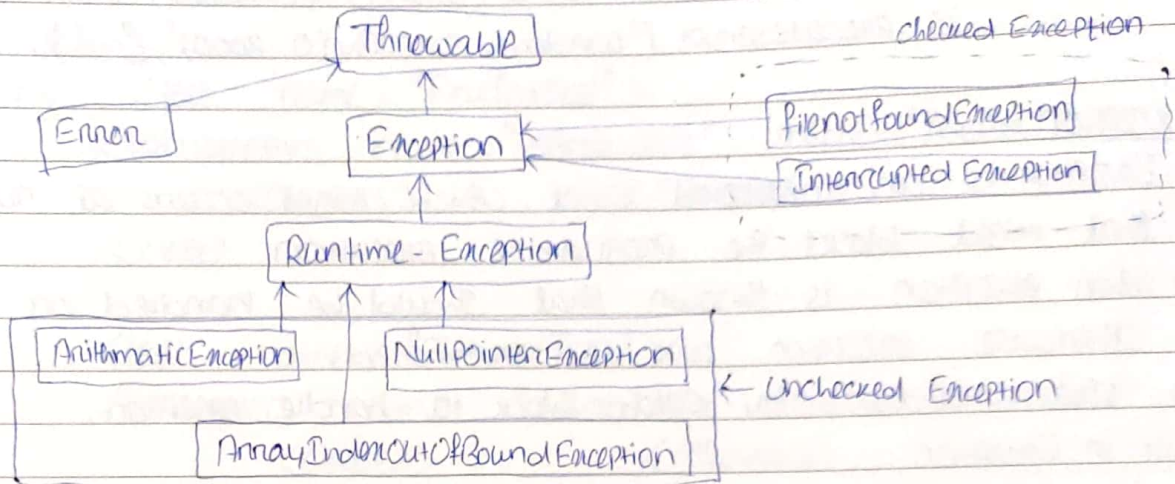 Throwable
checked Exception
Error
Exception
filenotfoundException
Interrupted Exception
Runtime - Exception
ArithmaticException
NullpointerException
← Unchecked Exception
ArrayIndexOutOfBoundException